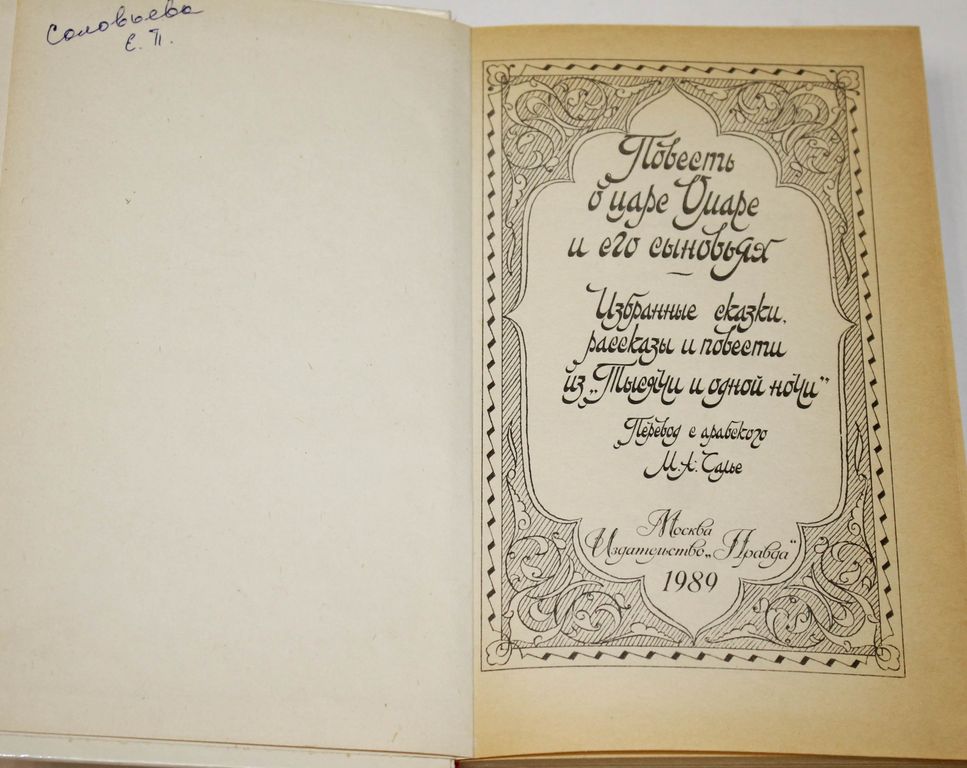 Соловьева
Е. П.
Повесть
о царе Омаре
и его сыновьях
Избранные сказки,
рассказы и повести
из „Тысячи и одной ночи“
Перевод с арабского
М. А. Салье
Москва
Издательство „Правда“
1989